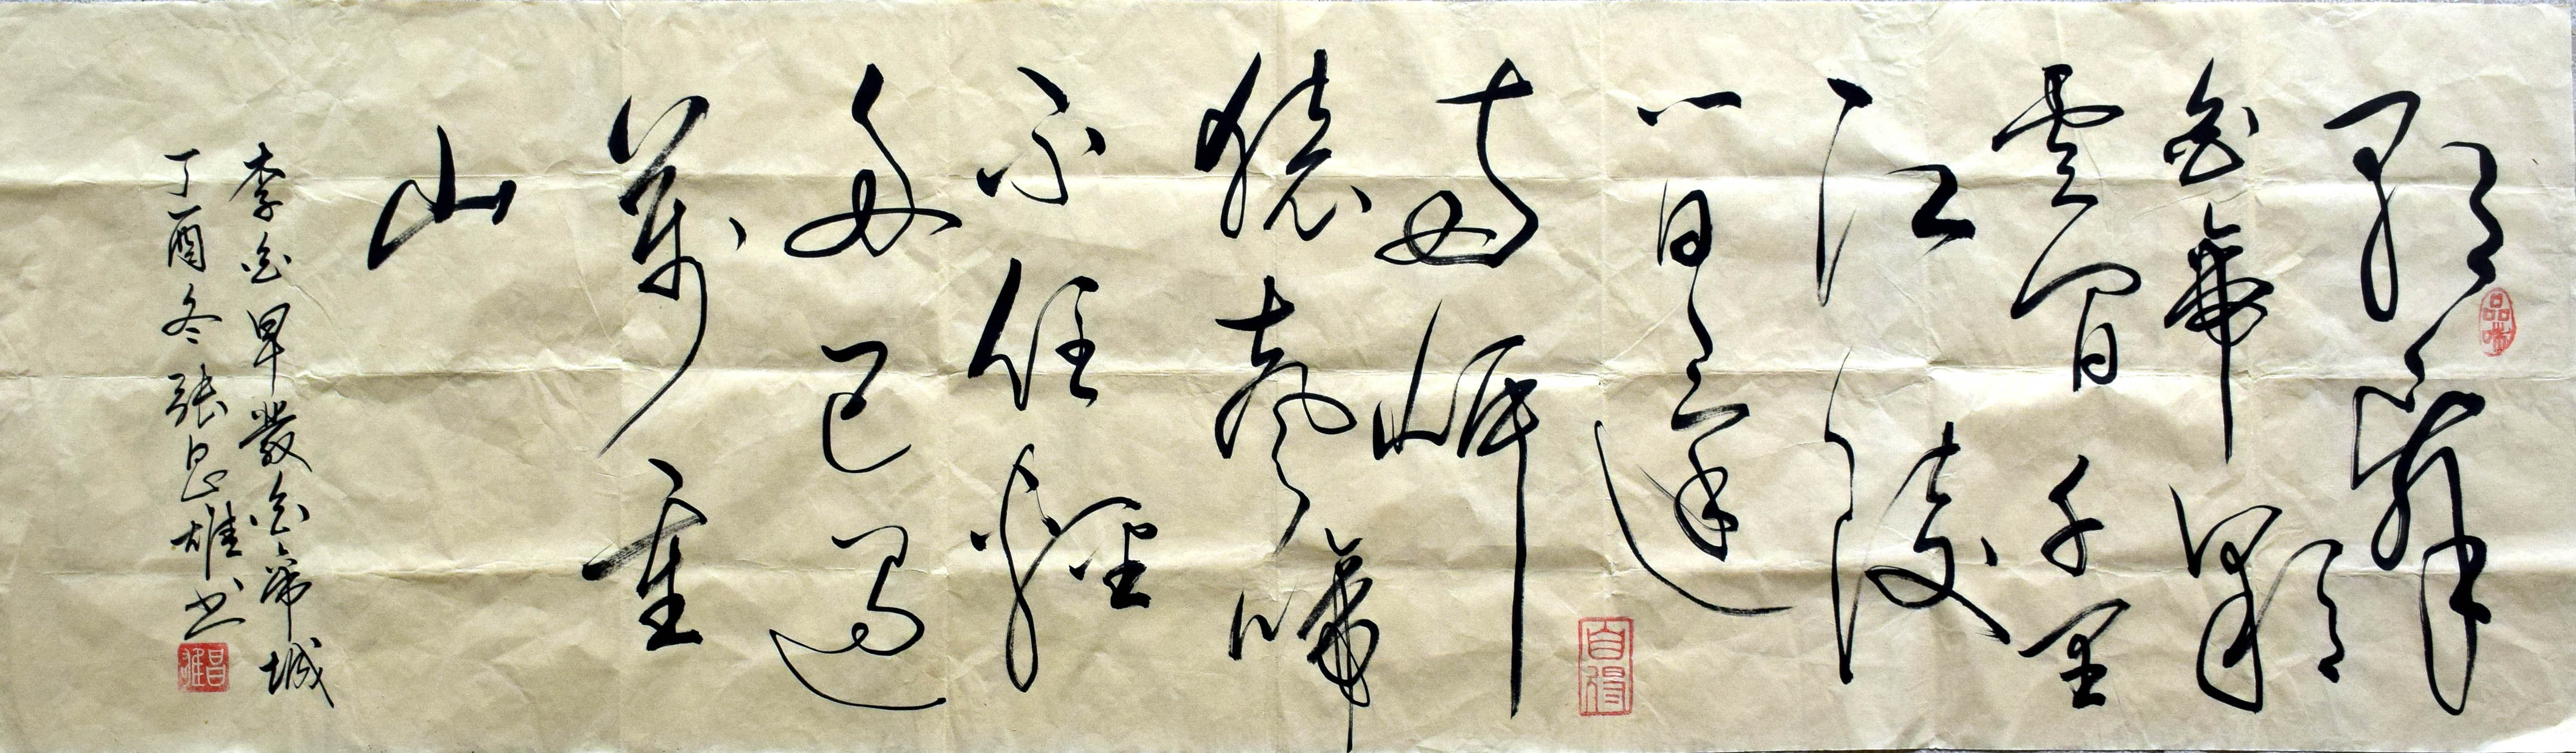 朝辭
白帝彩
雲間千里
江陵
一日還
自得
兩岸
猿聲啼
不住輕
舟已過
萬重
山
李白早發白帝城
丁酉冬張昌雄书
昌雄